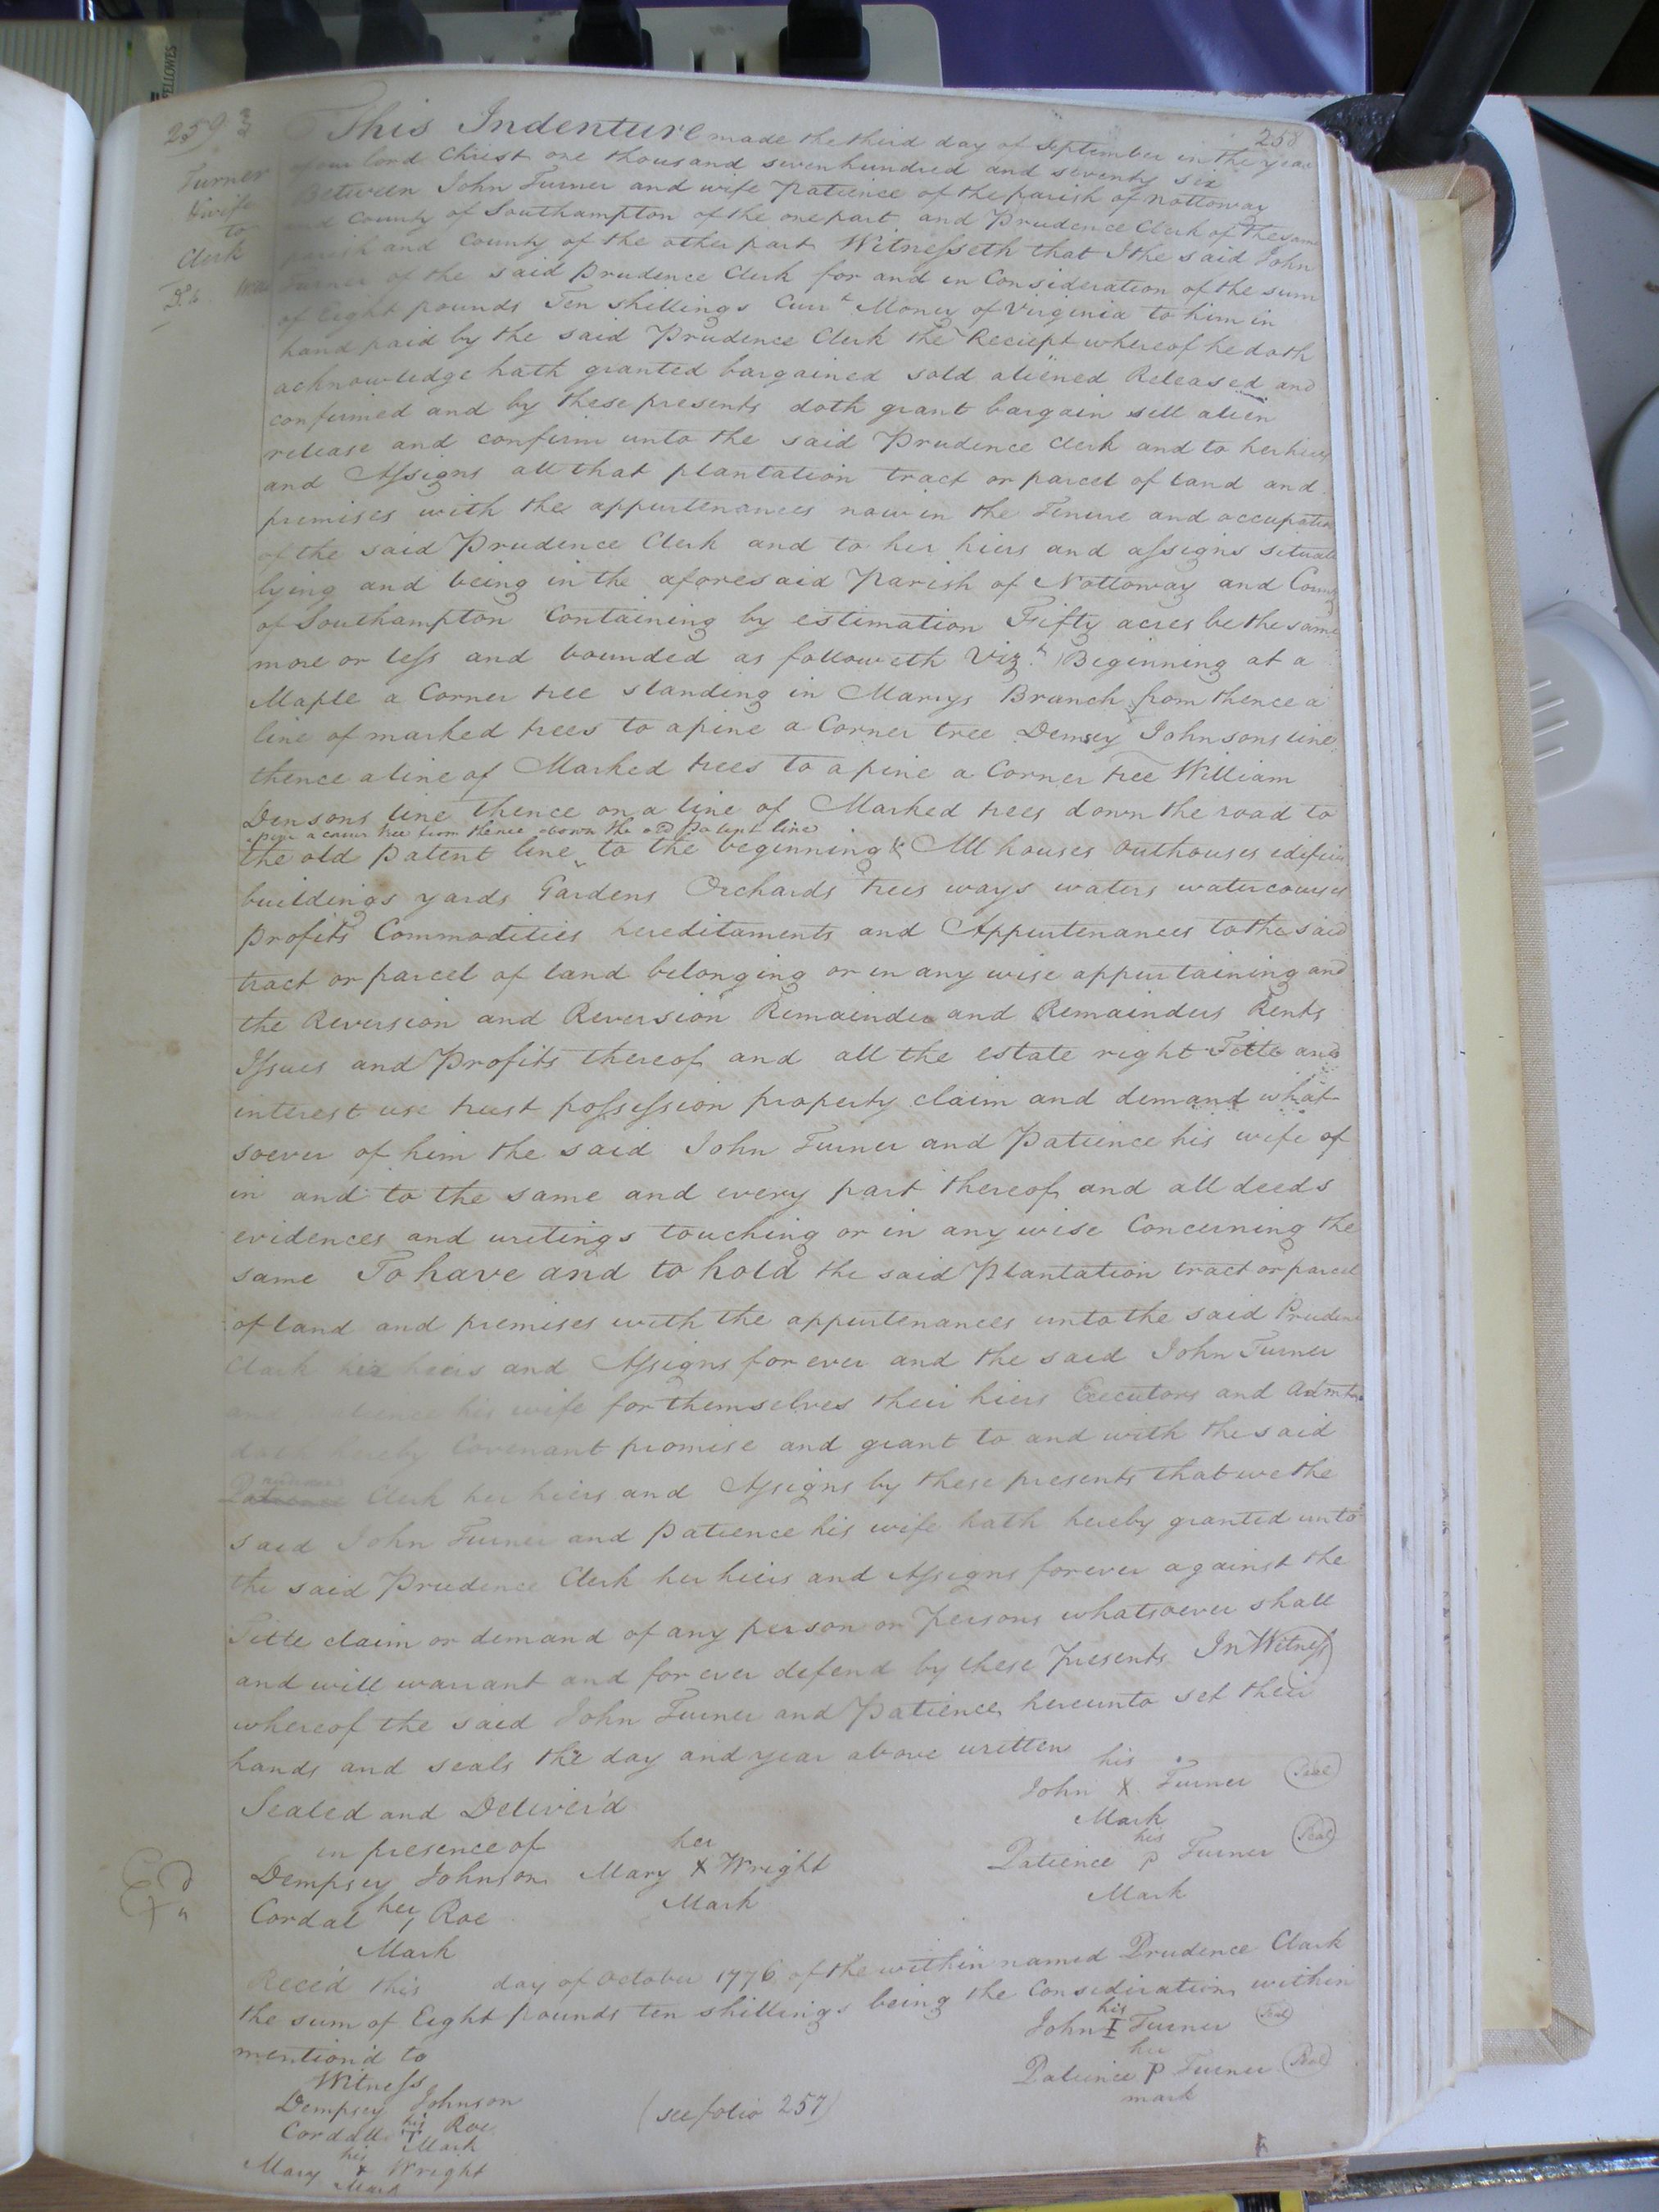 FELLOWES
259
258
Turner
& wife
to
Clerk
This Indenture made the third day of September in the year
of our lord Christ one thousand seven hundred and seventy six
Between John Turner and wife Patience of the parish of Nottoway
and County of Southampton of the one part and Prudence Clerk of the same
parish and County of the other part Witnesseth that I the said John
Turner of the said Prudence Clerk for and in Consideration of the sum
of Eight pounds Ten shillings Curr.t Money of Virginia to him in
hand paid by the said Prudence Clerk the Reciept whereof he doth
acknowledge hath granted bargained sold aliened Released and
confirmed and by these presents doth grant bargain sell alien
release and confirm unto the said Prudence Clerk and to her hiers
and Assigns all that plantation tract or parcel of land and
premises with the appurtenances now in the Tenure and occupation
of the said Prudence Clerk and to her hiers and assigns situate
lying and being in the aforesaid Parish of Nottoway and County
of Southampton Containing by estimation Fifty acres be the same
more or less and bounded as followeth Viz.t Beginning at a
Maple a Corner tree standing in Marys Branch from thence a
line of marked trees to a pine a Corner tree Demsey Johnsons line
thence a line of Marked trees to a pine a Corner tree William
Densons line thence on a line of Marked trees down the road to
a pine a corner tree from thence down the old Patent line
the old patent line to the beginning & All houses outhouses edifices
buildings yards Gardens Orchards trees ways waters watercourses
profits Commodities hereditaments and Appurtenances to the said
tract or parcel of land belonging or in any wise appurtaining and
the Reversion and Reversion Remainder and Remainders Rents
Issues and Profits thereof and all the estate right Title and
interest use trust possession property claim and demand what
soever of him the said John Turner and Patience his wife of
in and to the same and every part thereof and all deeds
evidences and writings touching or in any wise Concerning the
same To have and to hold the said Plantation tract or parcel
of land and premises with the appurtenances unto the said Prudence
Clark her hiers and Assigns for ever and the said John Turner
and Patience his wife for themselves their hiers Executors and Admtrs
doth hereby Covenant promise and grant to and with the said
Prudence Clerk her hiers and Assigns by these presents that we the
said John Turner and patience his wife hath hereby granted unto
the said Prudence Clerk her hiers and Assigns forever against the
Title claim or demand of any person or Persons whatsoever shall
and will warrant and for ever defend by these Presents In Witness
whereof the said John Turner and Patience hereunto set their
hands and seals the day and year above written
his
John X Turner Seal
Mark
Sealed and Deliver'd
in presence of
his
Patience P Turner Seal
Mark
her
Dempsey Johnson Mary X Wright
Mark
her
Cordal Roe
Mark
Rece'd this day of October 1776 of the within named Prudence Clark
the sum of Eight pounds ten shillings being the Consideration within
mention'd to
his
John I Turner Seal
her
Patience P Turner Seal
mark
Witness
Dempsey Johnson
his
Cordall T Roe
Mark
his
Mary x Wright
Mark
(see folio 257)